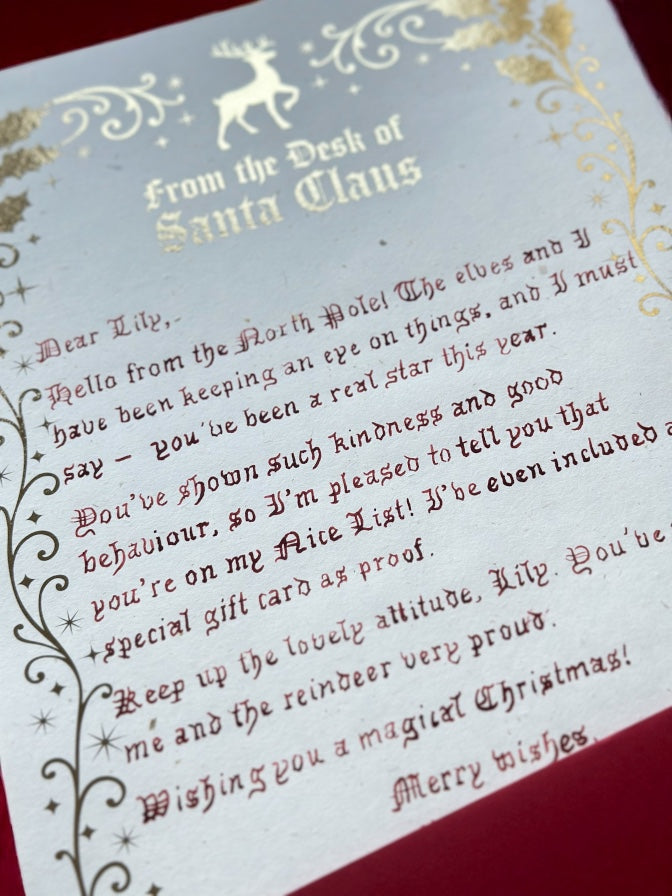 From the Desk of
Santa Claus
Dear Lily,-
Hello from the North Pole! The elves and I
have been keeping an eye on things, and I must
say – you've been a real star this year.
You've shown such kindness and good
behaviour, so I'm pleased to tell you that
you're on my Nice List! I've even included a
special gift card as proof.
Keep up the lovely attitude, Lily. You've
me and the reindeer very proud.
Wishing you a magical Christmas!
Merry wishes,